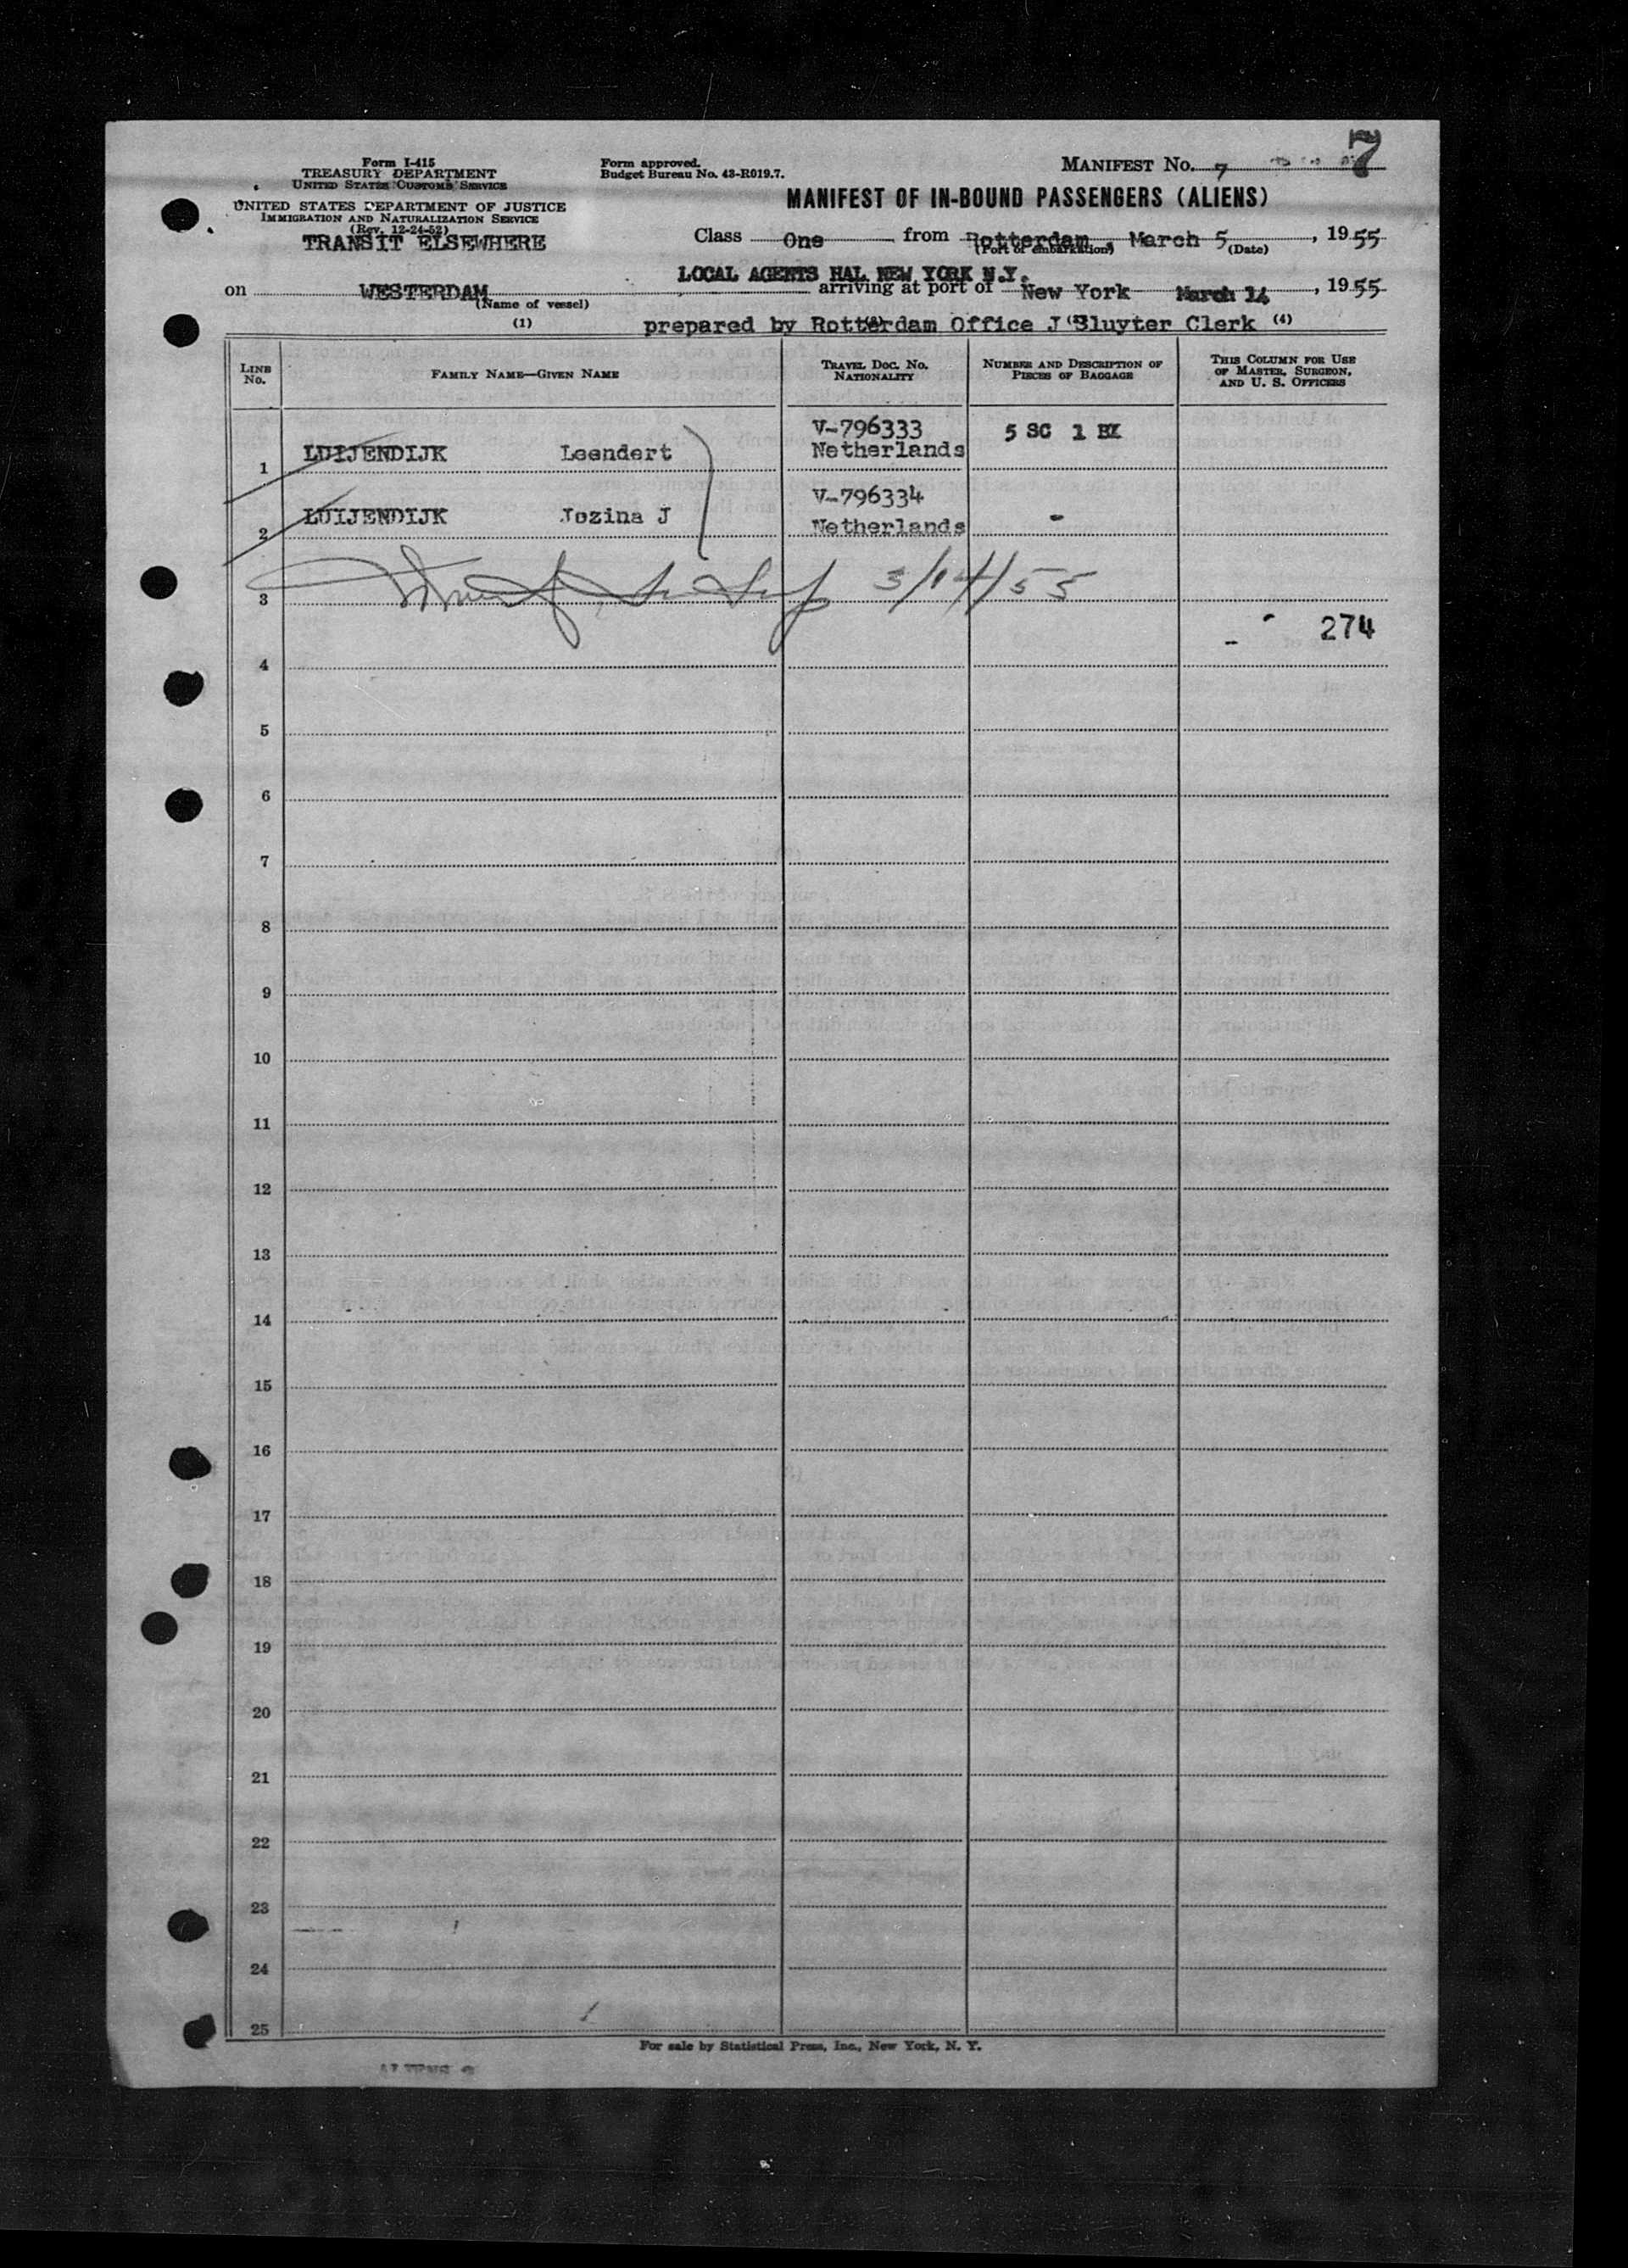 7
Form I-415
TREASURY DEPARTMENT
UNITED STATES CUSTOMS SERVICE
UNITED STATES DEPARTMENT OF JUSTICE
IMMIGRATION AND NATURALIZATION SERVICE
(Rev. 12-24-52)
TRANSIT ELSEWHERE
Form approved.
Budget Bureau No. 43-R019.7.
MANIFEST No. 7
MANIFEST OF IN-BOUND PASSENGERS (ALIENS)
Class One from Rotterdam, March 5, 1955
(Port of embarkation) (Date)
LOCAL AGENTS HAL NEW YORK N.Y.
on WESTERDAM arriving at port of New York March 14, 1955
(Name of vessel)
(1) prepared by Rotterdam Office J Sluyter Clerk (4)
LINE No. FAMILY NAME—GIVEN NAME TRAVEL DOC. NO. NATIONALITY NUMBER AND DESCRIPTION OF PIECES OF BAGGAGE THIS COLUMN FOR USE OF MASTER, SURGEON, AND U. S. OFFICERS
V-796333 5 SC 1 BX
1 LUIJENDIJK Leendert Netherlands
V-796334
2 LUIJENDIJK Jozina J Netherlands -
3 3/14/55
274
4
5
6
7
8
9
10
11
12
13
14
15
16
17
18
19
20
21
22
23
24
25
For sale by Statistical Press, Inc., New York, N. Y.